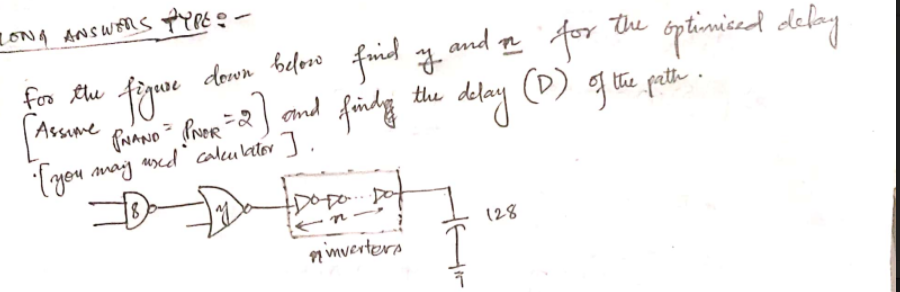 LONG ANSWERS TYPE :-
For the figure down below find y and n for the optimised delay
[Assume PNAND = PNOR = 2] and find the delay (D) of the path.
[you may used calculator].
8 y n 128
n inverters